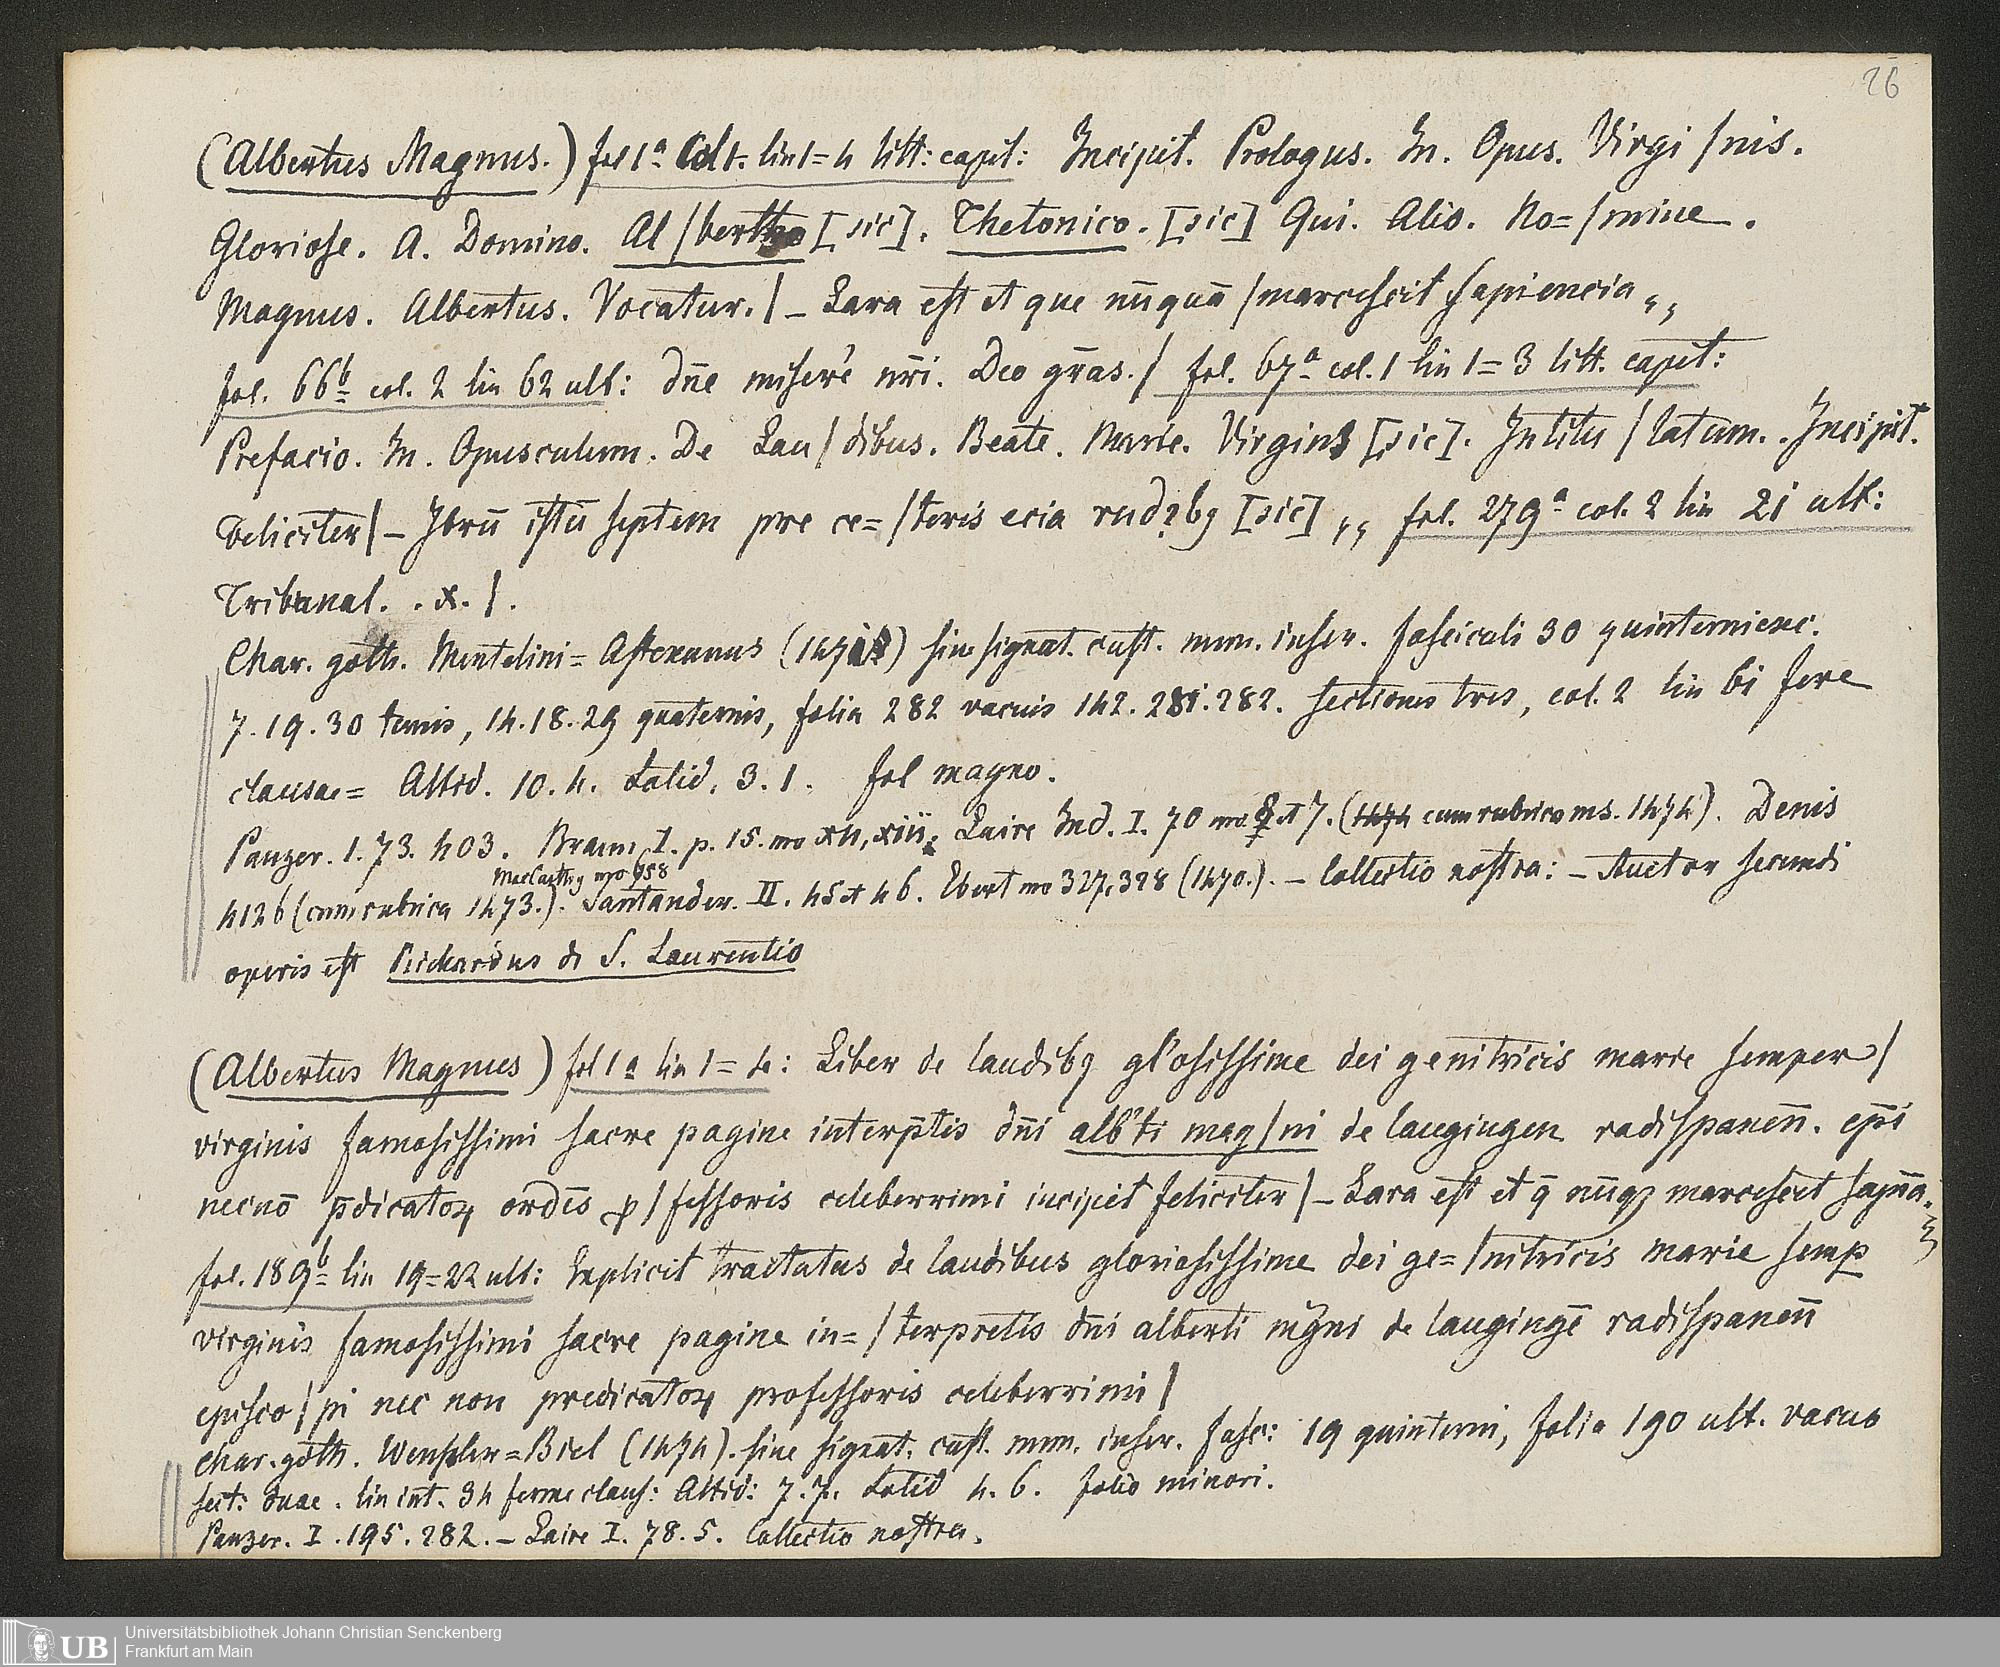 26
(Albertus Magnus.) fol 1ª Col 1. lin 1=4 litt: capit: Incipit. Prologus. In. Opus. Virgi/nis.
Gloriose. A. Domino. Al/bertho [sic]. Thetonico. [sic] Qui. Alio. No=/mine.
Magnus. Albertus. Vocatur./ – Lara est et que nūquā /marcescit sapiencia „
fol. 66b col. 2 lin 62 ult: dn̄e misere' nr̄i. Deo gr̄as./ fol. 67ª col. 1 lin 1=3 litt. capit:
Prefacio. In. Opusculum. De Lau/dibus. Beate. Marie. Virgins [sic]. Intitu/latum.. Incipit.
Feliciter/ – Ibrū istū septem pre ce=/teris ecia [sic] „ fol. 279ª col. 2 lin 21 ult:
Tribunal. . x. /.
Char. goth. Mentelini= Astexanus sine signat. cust. num. inser. fasciculi 30 quinterni exc.
7. 19. 30 ternis, 14. 18. 29 quaternis, folia 282 vacuis 142. 281. 282. sectiones tres, col. 2 lin 61 fere
clausae= Altid. 10. 4. Latid. 3. 1. fol magno.
Panzer. 1. 73. 403. Braun I. p. 15. no XII, XIII; Laire Ind. I. 70 no et 7. (1474 cum rubrica ms. 1474). Denis
MacCarthy no 658
4126 (cum rubrica 1473.). Santander. II. 45 et 46. Ebert no 327, 328 (1470.). – Collectio nostra: – Auctor secundi
operis est Richardus de S. Laurentio
(Albertus Magnus) fol 1ª lin 1=4: Liber de laudibꝫ gl'osissime dei genitricis marie semper/
virginis famosissimi sacre pagine interp̄tis dn̄i alb'ti mag/ni de laugingen radispanen̄. ep̄i
necnō p̄dicatoꝝ ordīs ꝓ/fessoris celeberrimi incipit feliciter/ – Lara est et q̄ nūqꝫ marcescet sapīa.
fol. 189b lin 19=22 ult: Explicit tractatus de laudibus gloriosissime dei ge=/nitricis marie semꝑ
virginis famosissimi sacre pagine in=/terpretis dn̄i alberti mḡni de laugingē radispanen̄
episco/pi nec non predicatoꝝ professoris celeberrimi/
Char. goth. Wenssler=Biel (1474). sine signat. cust. num. inser. Fasc: 19 quinterni, folia 190 ult. vacuo
sect: duae. lin int. 34 ferme claus: Altid: 7. 7. Latid 4. 6. folio minori.
Panzer. I. 195. 282. – Laire I. 78. 5. Collectio nostra.
UB Universitätsbibliothek Johann Christian Senckenberg
Frankfurt am Main